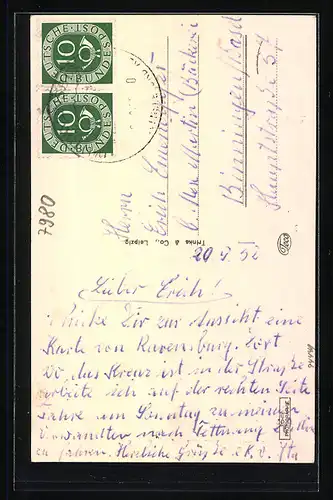 DEUTSCHE BUNDESPOST
10
DEUTSCHE BUNDESPOST
10
7980
Herrn
Erich
Binningen/Basel
Hauptstrasse 37
Trinks & Co., Leipzig
20.5.52
Lieber Erich!
Schicke Dir zur Ansicht eine
Karte von Ravensburg. Dort
wo das Kreuz ist in der Straße
arbeite ich auf der rechten Seite
Fahre am Sonntag zu meinen
Verwandten nach Tettnang
zu fahren. Herzliche Grüße